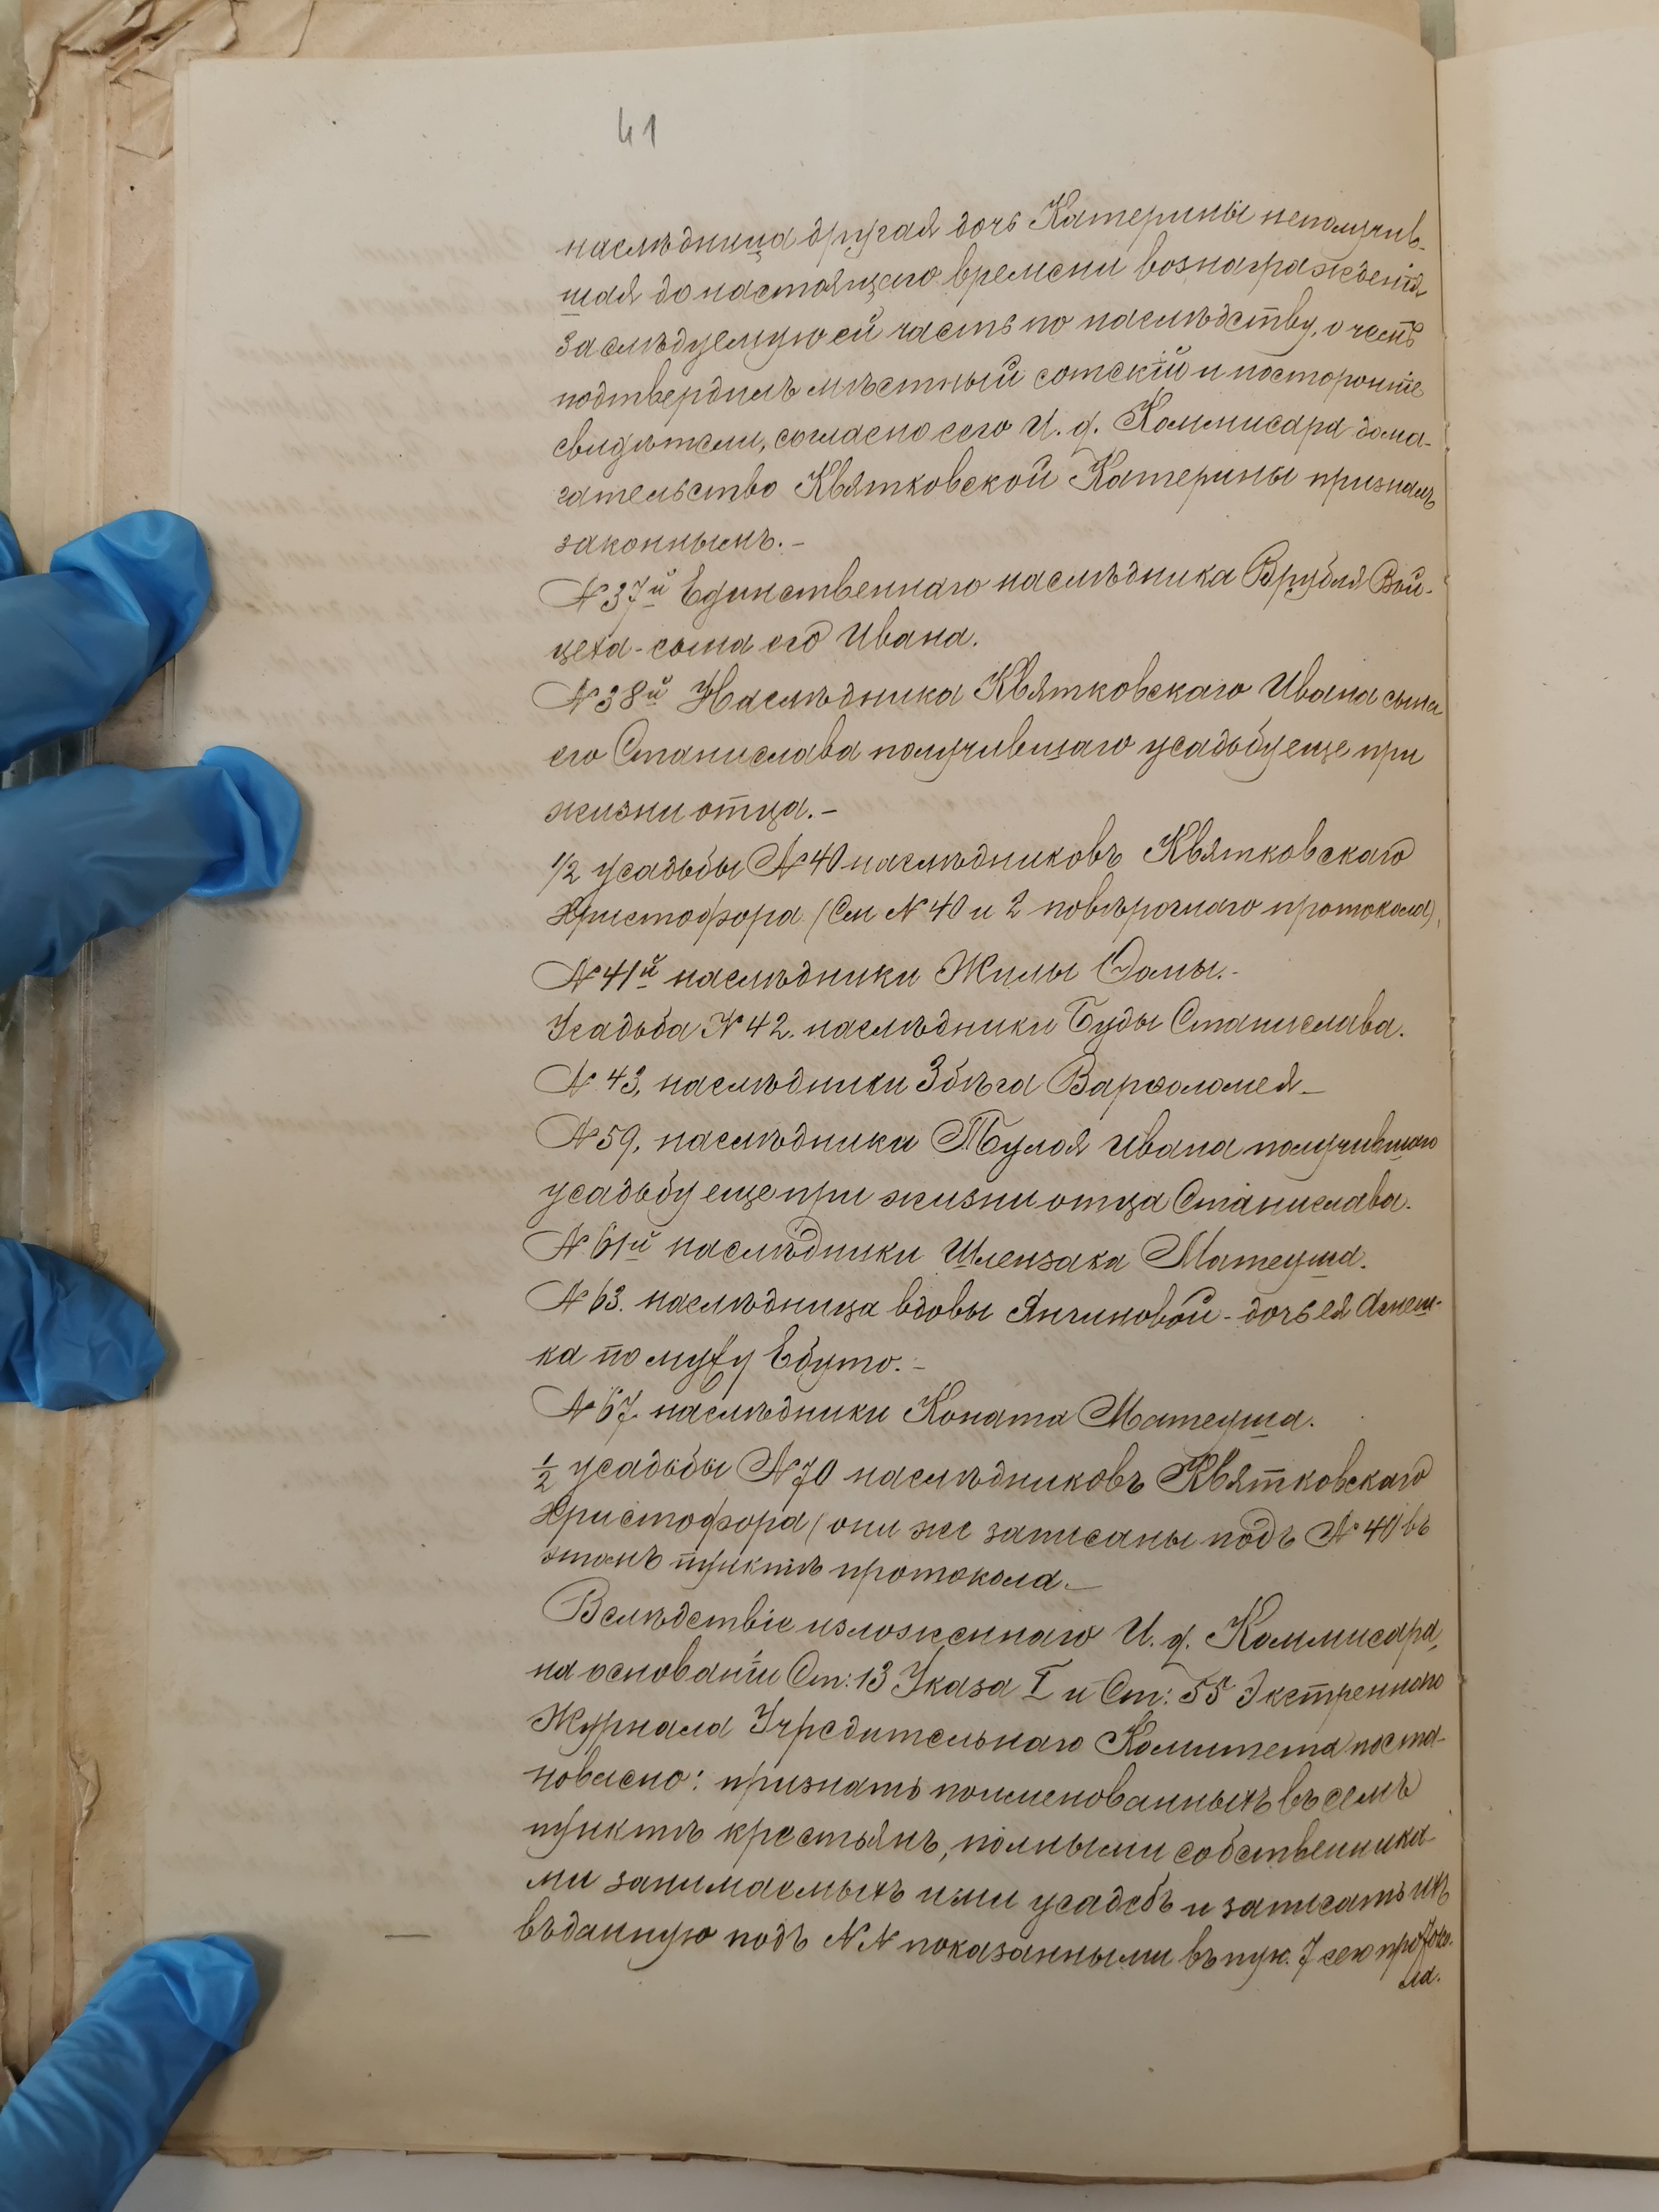 41
наслѣдница другая дочь Катерины неполучив-
шая до настоящаго времени вознагражденія
за слѣдуемую ей часть по наслѣдству, о чемъ
подтвердилъ мѣстный сотскій и посторонніе
свидѣтели, согласно сего И. д. Коммисара дома-
гательство Квятковской Катерины призналъ
законнымъ.-
№ 37й Единственнаго наслѣдника Врубля Вой-
цеха - сына его Ивана.
№ 38й Наслѣдника Квятковскаго Ивана сына
его Станислава получившаго усадьбу еще при
жизни отца.-
1/2 усадьбы № 40 наслѣдниковъ Квятковскаго
Христофора (См № 40 и 2 повѣрочнаго протокола).
№ 41й наслѣдники Жилы Ѳомы.-
Усадьба № 42. наслѣдники Буды Станислава.
№ 43, наслѣдники Збѣга Варѳоломея-
№ 59, наслѣдника Тбуля Ивана получившаго
усадьбу еще при жизни отца Станислава.
№ 61й наслѣдники Шлензака Матеуша.
№ 63. наслѣдница вдовы Янчиновой - дочь ея Агнеш-
ка по мужу Ебуто.-
№ 67 наслѣдники Коната Матеуша.
1/2 усадьбы № 70 наслѣдниковъ Квятковскаго
Христофора (они же записаны подъ № 40 въ
этомъ пунктѣ протокола.-
Вслѣдствіе изложеннаго И. д. Коммисара,
на основаніи Ст: 13 Указа I и Ст: 55 Экстреннаго
Журнала Учредительнаго Комитета поста-
новлено: признать поименованныхъ въ семъ
пунктѣ крестьянъ, полными собственника-
ми занимаемыхъ ими усадебъ и записать ихъ
въ данную подъ №№ показанными въ пун. 7 сего протоко-
ла.